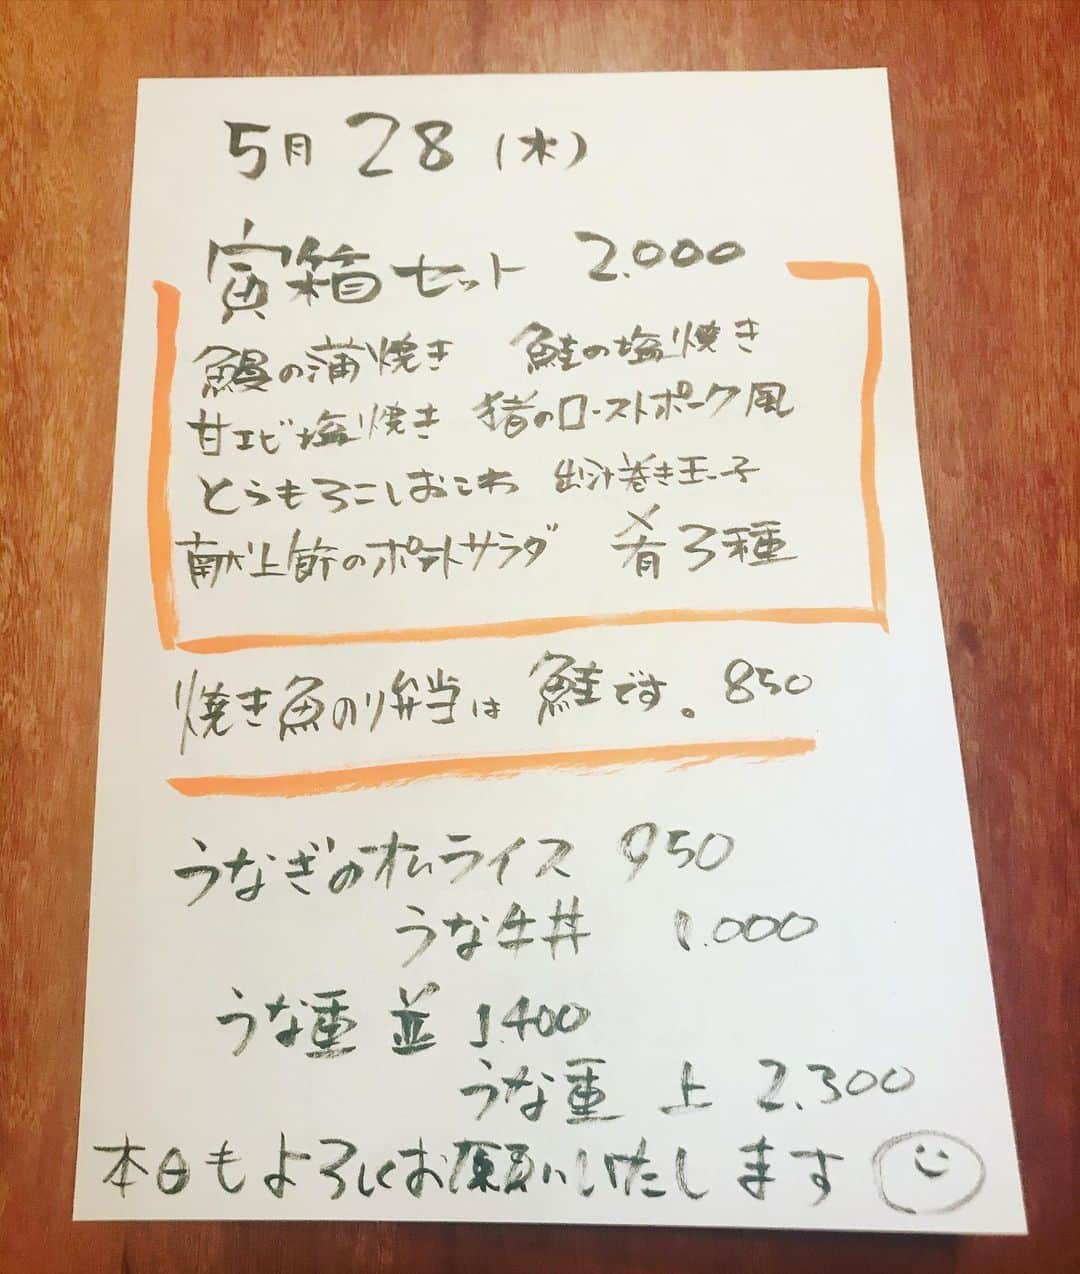 5月 28 (水)
寅箱セット 2.000
鰻の蒲焼き 鮭の塩焼き
甘エビ塩焼き 猪のローストポーク風
とうもろこしおこわ 出汁巻き玉子
献上節のポテトサラダ 肴3種
焼き魚のり弁当は 鮭です。850
うなぎのオムライス 950
うな牛丼 1.000
うな重 並 1.400
うな重 上 2.300
本日もよろしくお願いいたします